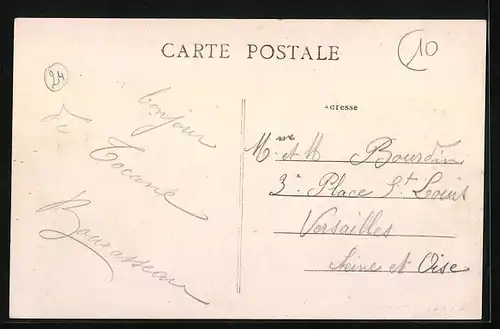 CARTE POSTALE
24
10
bonjour
de Tocane
Bourasseau
Adresse
Mme et M Bourdin
3, Place St Louis
Versailles
Seine et Oise